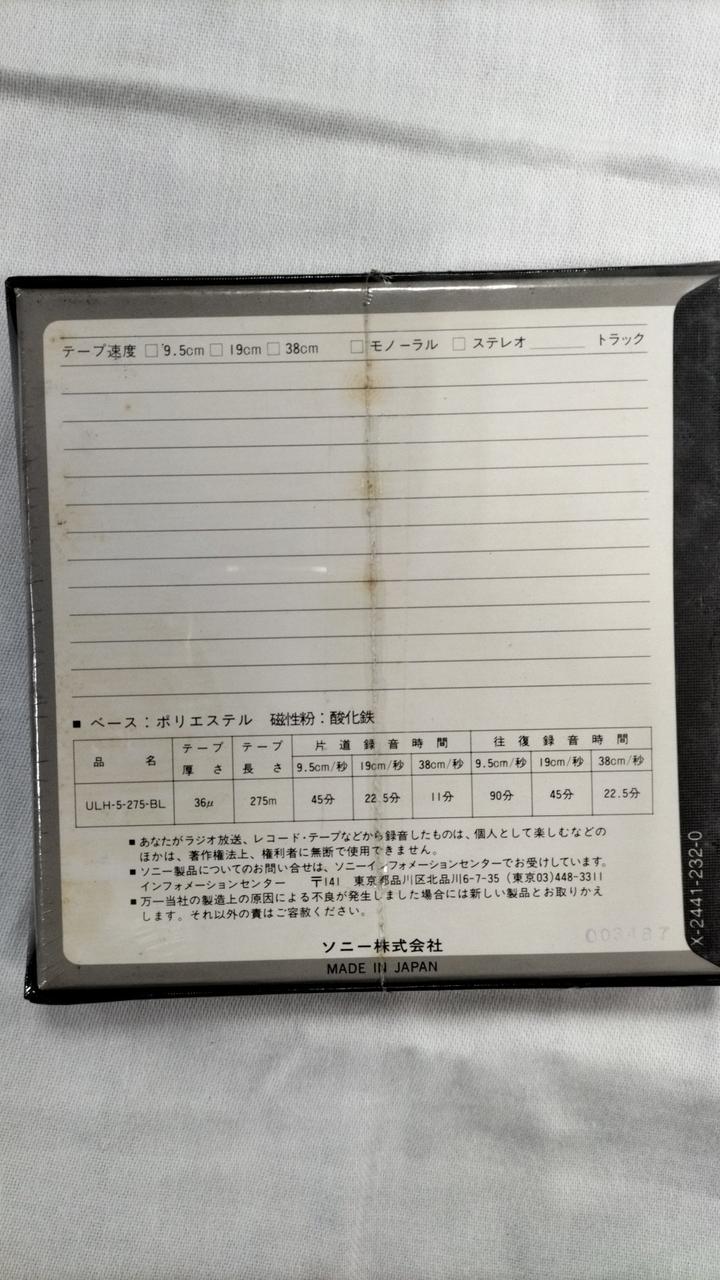 テープ速度 □ 9.5cm □ 19cm □ 38cm □ モノーラル □ ステレオ______ トラック
■ ベース：ポリエステル 磁性粉：酸化鉄
品名 テープ厚さ テープ長さ 片道録音時間 往復録音時間
9.5cm/秒 19cm/秒 38cm/秒 9.5cm/秒 19cm/秒 38cm/秒
ULH-5-275-BL 36μ 275m 45分 22.5分 11分 90分 45分 22.5分
■ あなたがラジオ放送、レコード・テープなどから録音したものは、個人として楽しむなどの
ほかは、著作権法上、権利者に無断で使用できません。
■ ソニー製品についてのお問い合せは、ソニーインフォメーションセンターでお受けしています。
インフォメーションセンター 〒141 東京都品川区北品川6-7-35（東京03)448-3311
■ 万一当社の製造上の原因による不良が発生しました場合には新しい製品とお取りかえ
します。それ以外の責はご容赦ください。
ソニー株式会社
MADE IN JAPAN
003487
X-2441-232-0